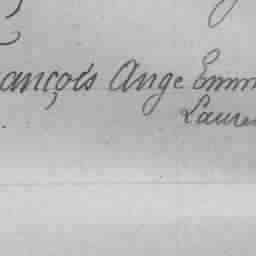 ançois Ange Emm
Laure